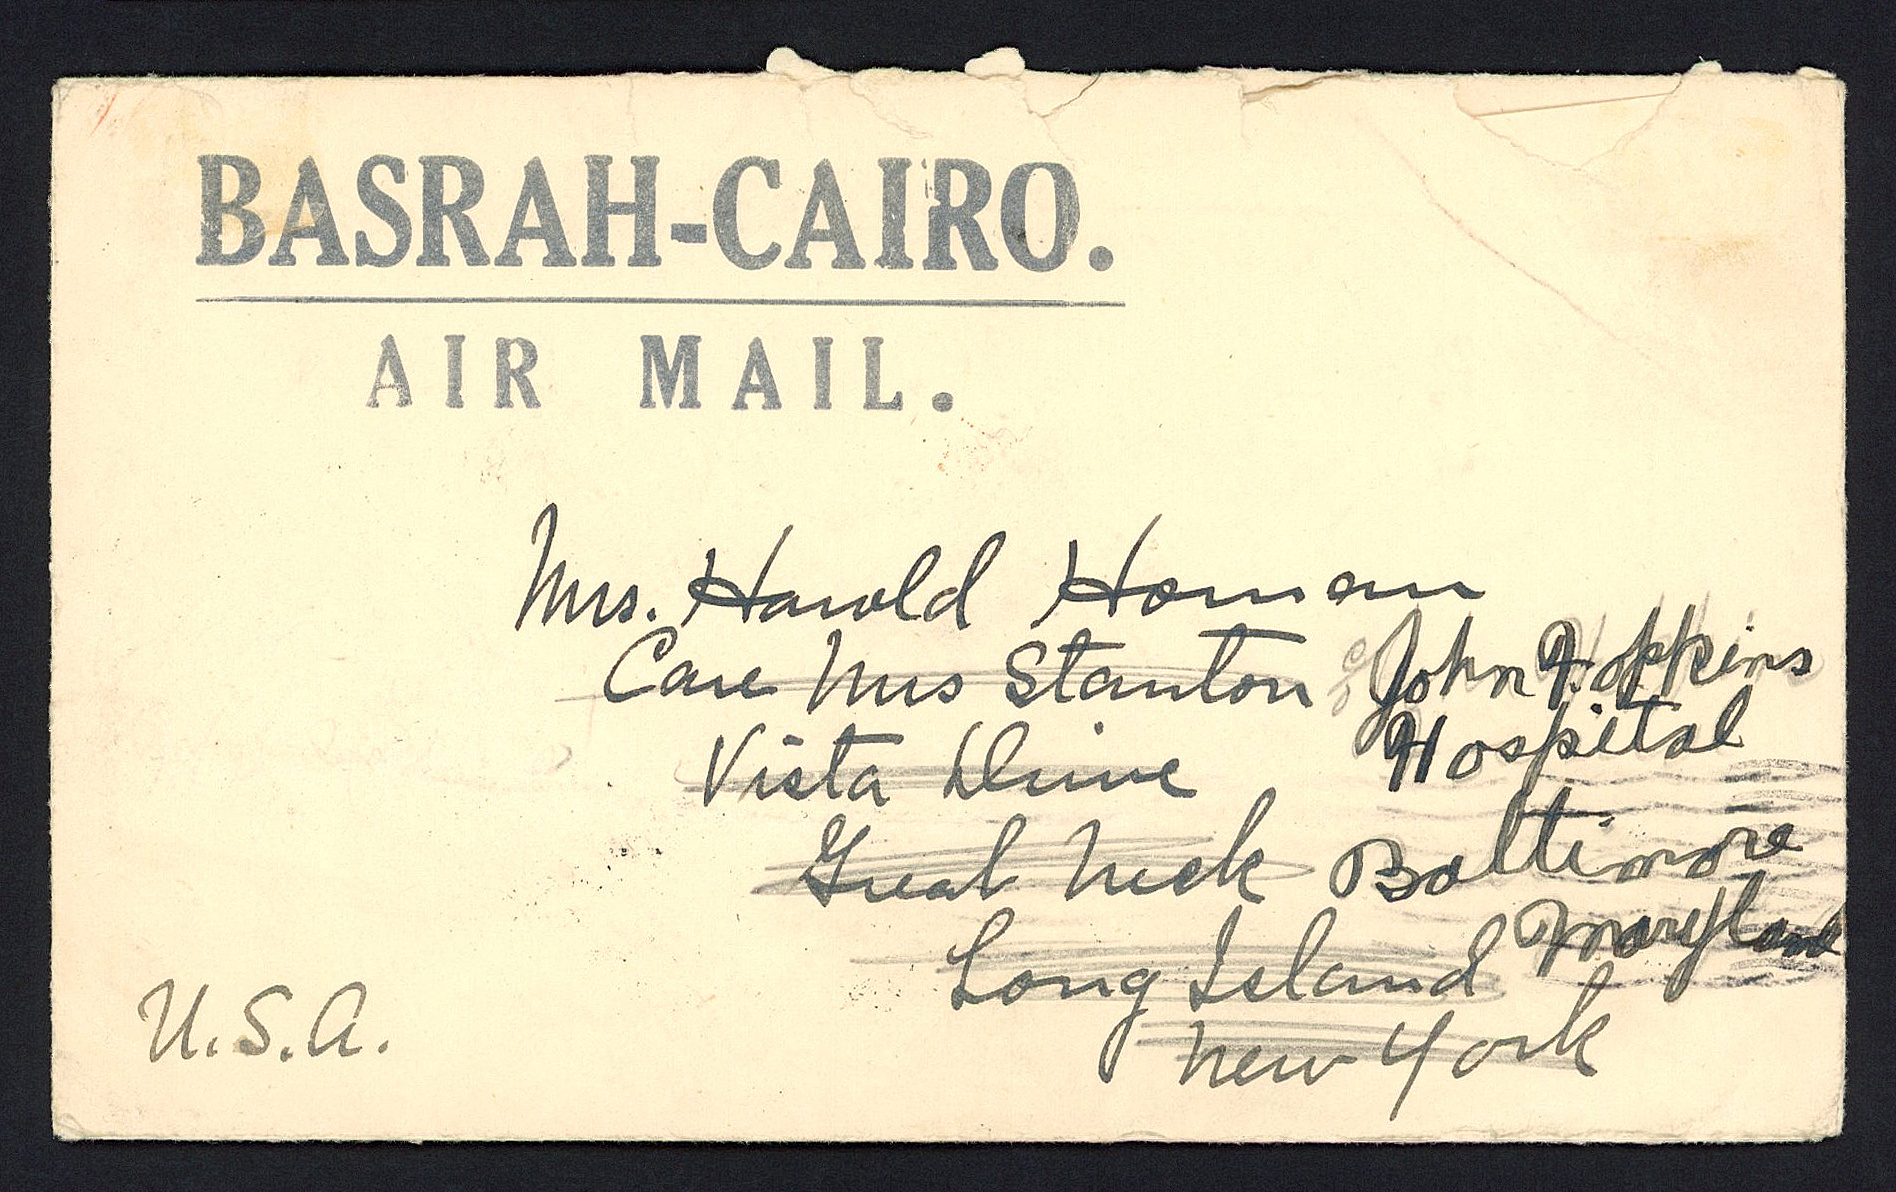 BASRAH-CAIRO.
AIR MAIL.
Mrs. Harold Homan
Care Mrs Stanton
Vista Drive
Great Neck
Long Island
New York
John Hopkins
Hospital
Baltimore
Maryland
U.S.A.